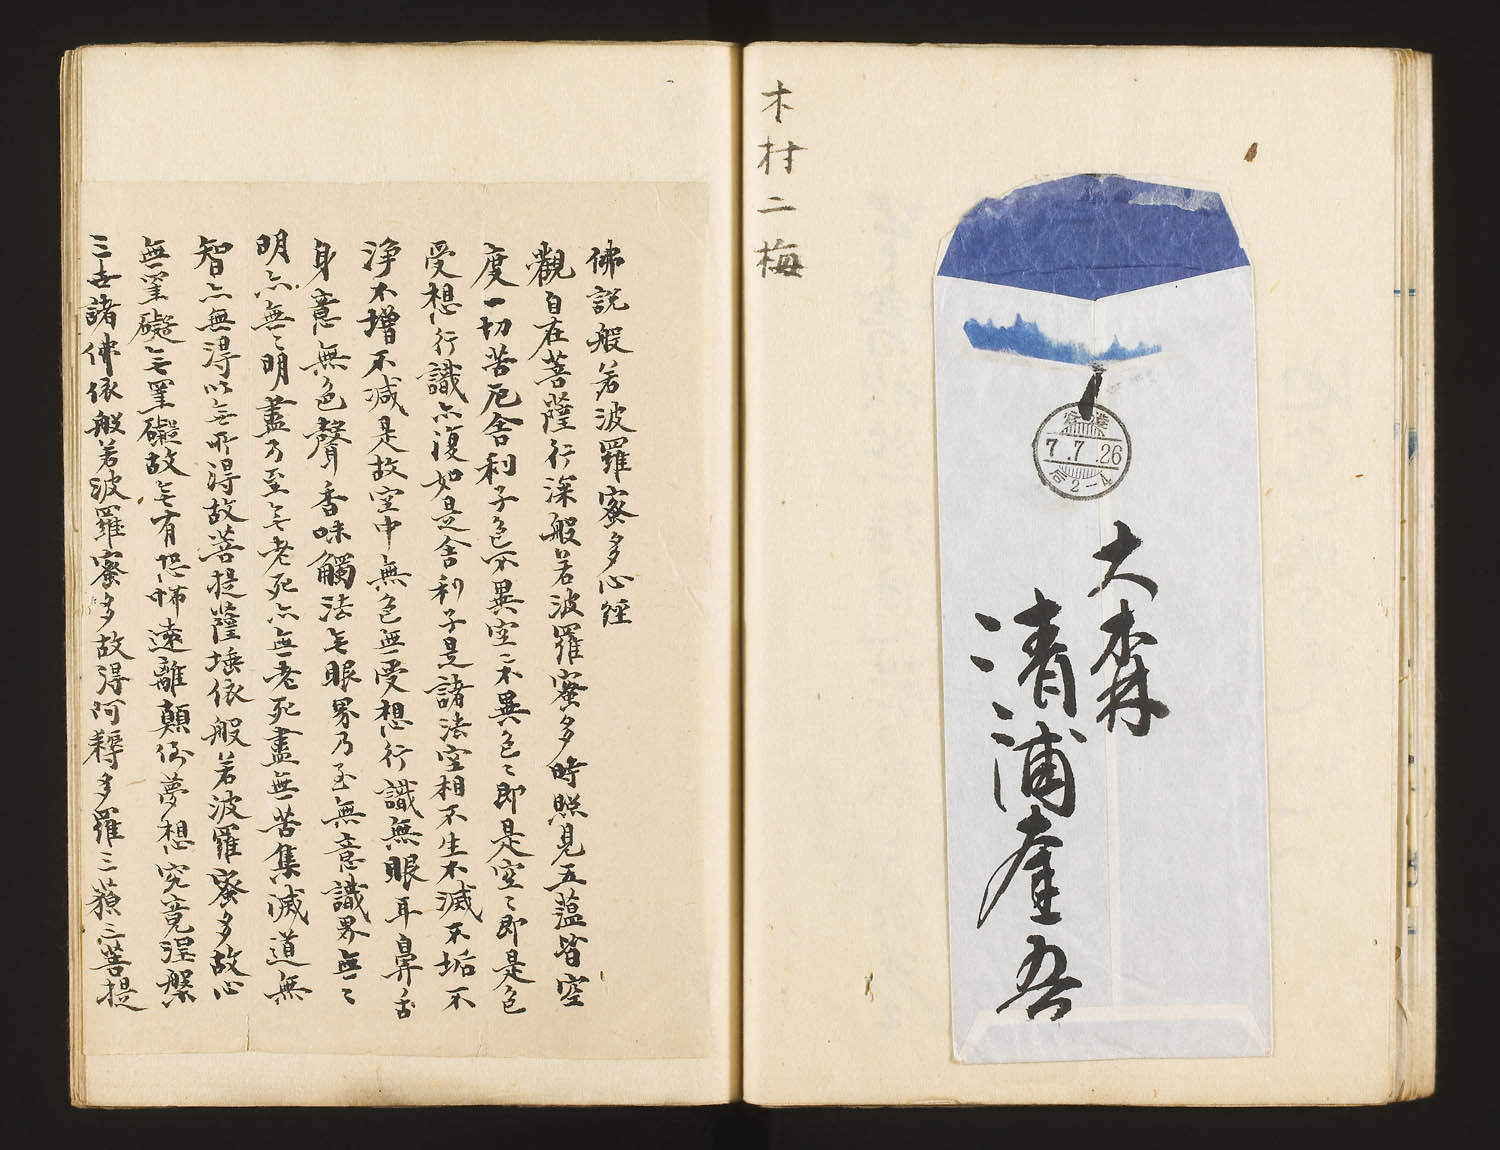 木村二梅
大森
清浦奎吾
7.7.26
2-4
佛説般若波羅蜜多心経
觀自在菩薩行深般若波羅蜜多時照見五蘊皆空
度一切苦厄舎利子色不異空ミ不異色ミ即是空ミ即是色
受想行識亦復如是舎利子是諸法空相不生不滅不垢不
浄不増不減是故空中無色無受想行識無眼耳鼻舌
身意無色聲香味觸法無眼界乃至無意識界無ミ
明亦無ミ明盡乃至無老死亦無老死盡無苦集滅道無
智亦無得以無所得故菩提薩埵依般若波羅蜜多故心
無罣礙無罣礙故無有恐怖遠離顛倒夢想究竟涅槃
三世諸佛依般若波羅蜜多故得阿耨多羅三藐三菩提